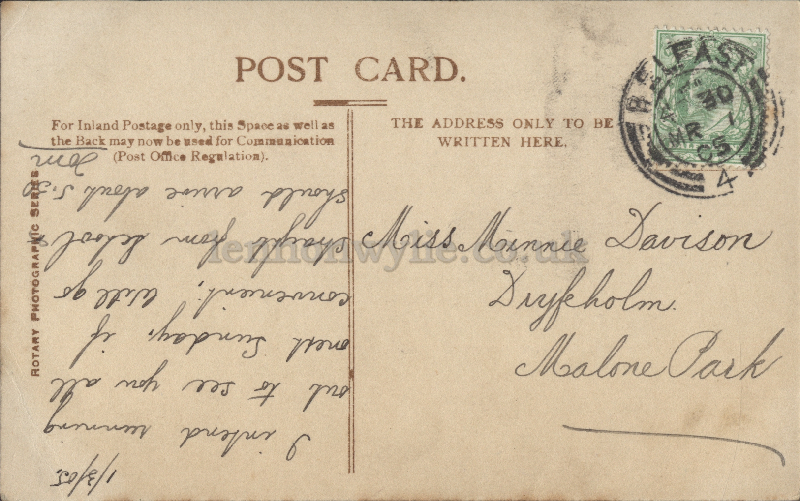 POST CARD.
For Inland Postage only, this Space as well as
the Back may now be used for Communication
(Post Office Regulation).
THE ADDRESS ONLY TO BE
WRITTEN HERE.
BELFAST
30
MR 1
05
4
ROTARY PHOTOGRAPHIC SERIES
lennonwylie.co.uk
Miss Minnie Davison
Dryfeholm.
Malone Park
1/3/05.
I intend running
out to see you all
next Sunday, if
convenient. Will go
straight from School &
should arrive about 5.30
Tom